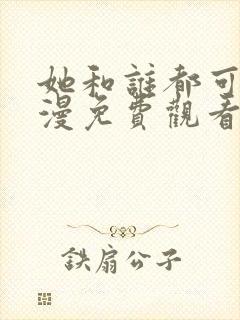 她和誰都可
漫免費觀看
鉄扇公子